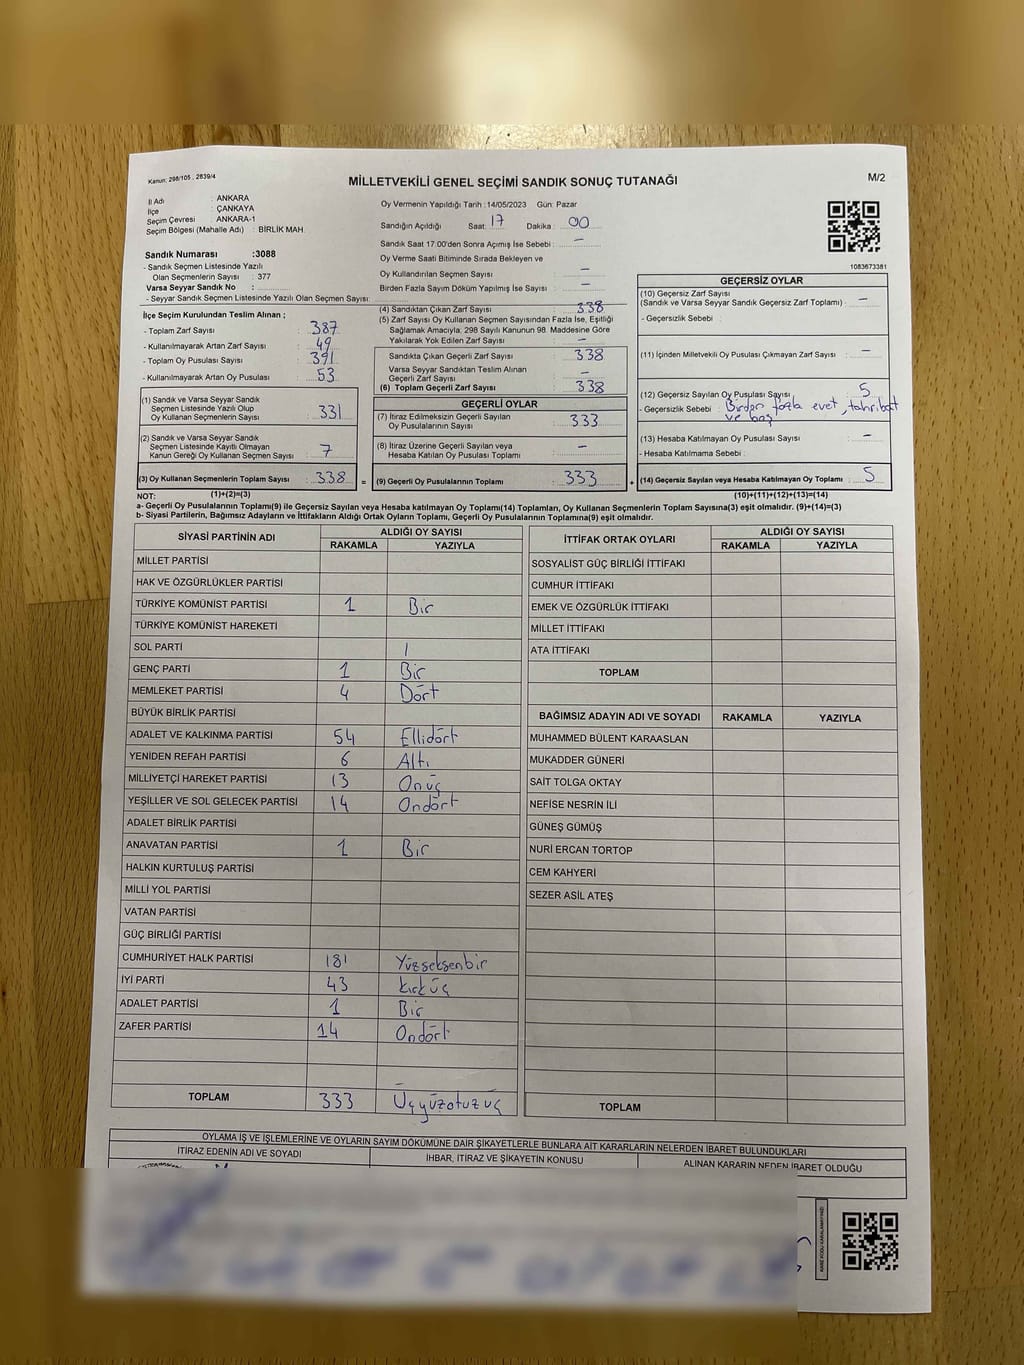 Kanun: 298/105 , 2839/4
MİLLETVEKİLİ GENEL SEÇİMİ SANDIK SONUÇ TUTANAĞI
M/2
İl Adı : ANKARA
İlçe : ÇANKAYA
Seçim Çevresi : ANKARA-1
Seçim Bölgesi (Mahalle Adı) : BİRLİK MAH.
Oy Vermenin Yapıldığı Tarih :14/05/2023 Gün: Pazar
Sandığın Açıldığı Saat: 17 Dakika : 00
Sandık Saat 17.00'den Sonra Açımış İse Sebebi : —
Oy Verme Saati Bitiminde Sırada Bekleyen ve
Oy Kullandırılan Seçmen Sayısı : —
Birden Fazla Sayım Döküm Yapılmış İse Sayısı : —
Sandık Numarası :3088
- Sandık Seçmen Listesinde Yazılı
Olan Seçmenlerin Sayısı : 377
Varsa Seyyar Sandık No :
- Seyyar Sandık Seçmen Listesinde Yazılı Olan Seçmen Sayısı:
1083673381
İlçe Seçim Kurulundan Teslim Alınan ;
- Toplam Zarf Sayısı : 387
- Kullanılmayarak Artan Zarf Sayısı : 49
- Toplam Oy Pusulası Sayısı : 391
- Kullanılmayarak Artan Oy Pusulası : 53
(1) Sandık ve Varsa Seyyar Sandık
Seçmen Listesinde Yazılı Olup
Oy Kullanan Seçmenlerin Sayısı : 331
(2) Sandık ve Varsa Seyyar Sandık
Seçmen Listesinde Kayıtlı Olmayan
Kanun Gereği Oy Kullanan Seçmen Sayısı : 7
(3) Oy Kullanan Seçmenlerin Toplam Sayısı : 338 =
(4) Sandıktan Çıkan Zarf Sayısı : 338
(5) Zarf Sayısı Oy Kullanan Seçmen Sayısından Fazla İse, Eşitliği
Sağlamak Amacıyla; 298 Sayılı Kanunun 98. Maddesine Göre
Yakılarak Yok Edilen Zarf Sayısı : —
Sandıkta Çıkan Geçerli Zarf Sayısı : 338
Varsa Seyyar Sandıktan Teslim Alınan
Geçerli Zarf Sayısı : —
(6) Toplam Geçerli Zarf Sayısı : 338
GEÇERLİ OYLAR
(7) İtiraz Edilmeksizin Geçerli Sayılan
Oy Pusulalarının Sayısı : 333
(8) İtiraz Üzerine Geçerli Sayılan veya
Hesaba Katılan Oy Pusulası Toplamı : —
(9) Geçerli Oy Pusulalarının Toplamı : 333 +
GEÇERSİZ OYLAR
(10) Geçersiz Zarf Sayısı
(Sandık ve Varsa Seyyar Sandık Geçersiz Zarf Toplamı) : —
- Geçersizlik Sebebi :
(11) İçinden Milletvekili Oy Pusulası Çıkmayan Zarf Sayısı : —
(12) Geçersiz Sayılan Oy Pusulası Sayısı : 5
- Geçersizlik Sebebi : Birden fazla evet, tahribat
ve boş
(13) Hesaba Katılmayan Oy Pusulası Sayısı : —
- Hesaba Katılmama Sebebi :
(14) Geçersiz Sayılan veya Hesaba Katılmayan Oy Toplamı : 5
NOT: (1)+(2)=(3) (10)+(11)+(12)+(13)=(14)
a- Geçerli Oy Pusulalarının Toplamı(9) ile Geçersiz Sayılan veya Hesaba katılmayan Oy Toplamı(14) Toplamları, Oy Kullanan Seçmenlerin Toplam Sayısına(3) eşit olmalıdır. (9)+(14)=(3)
b- Siyasi Partilerin, Bağımsız Adayların ve İttifakların Aldığı Ortak Oyların Toplamı, Geçerli Oy Pusulalarının Toplamına(9) eşit olmalıdır.
SİYASİ PARTİNİN ADI ALDIĞI OY SAYISI
RAKAMLA YAZIYLA
MİLLET PARTİSİ
HAK VE ÖZGÜRLÜKLER PARTİSİ
TÜRKİYE KOMÜNİST PARTİSİ 1 Bir
TÜRKİYE KOMÜNİST HAREKETİ
SOL PARTİ
GENÇ PARTİ 1 Bir
MEMLEKET PARTİSİ 4 Dört
BÜYÜK BİRLİK PARTİSİ
ADALET VE KALKINMA PARTİSİ 54 Ellidört
YENİDEN REFAH PARTİSİ 6 Altı
MİLLİYETÇİ HAREKET PARTİSİ 13 Onüç
YEŞİLLER VE SOL GELECEK PARTİSİ 14 Ondört
ADALET BİRLİK PARTİSİ
ANAVATAN PARTİSİ 1 Bir
HALKIN KURTULUŞ PARTİSİ
MİLLİ YOL PARTİSİ
VATAN PARTİSİ
GÜÇ BİRLİĞİ PARTİSİ
CUMHURİYET HALK PARTİSİ 181 Yüzseksenbir
İYİ PARTİ 43 Kırküç
ADALET PARTİSİ 1 Bir
ZAFER PARTİSİ 14 Ondört
TOPLAM 333 Üçyüzotuzüç
İTTİFAK ORTAK OYLARI ALDIĞI OY SAYISI
RAKAMLA YAZIYLA
SOSYALİST GÜÇ BİRLİĞİ İTTİFAKI
CUMHUR İTTİFAKI
EMEK VE ÖZGÜRLÜK İTTİFAKI
MİLLET İTTİFAKI
ATA İTTİFAKI
TOPLAM
BAĞIMSIZ ADAYIN ADI VE SOYADI RAKAMLA YAZIYLA
MUHAMMED BÜLENT KARAASLAN
MUKADDER GÜNERİ
SAİT TOLGA OKTAY
NEFİSE NESRİN İLİ
GÜNEŞ GÜMÜŞ
NURİ ERCAN TORTOP
CEM KAHYERİ
SEZER ASİL ATEŞ
TOPLAM
OYLAMA İŞ VE İŞLEMLERİNE VE OYLARIN SAYIM DÖKÜMÜNE DAİR ŞİKAYETLERLE BUNLARA AİT KARARLARIN NELERDEN İBARET BULUNDUKLARI
İTİRAZ EDENİN ADI VE SOYADI İHBAR, İTİRAZ VE ŞİKAYETİN KONUSU ALINAN KARARIN NEDEN İBARET OLDUĞU
KARE KODU KARALAMAYINIZ!